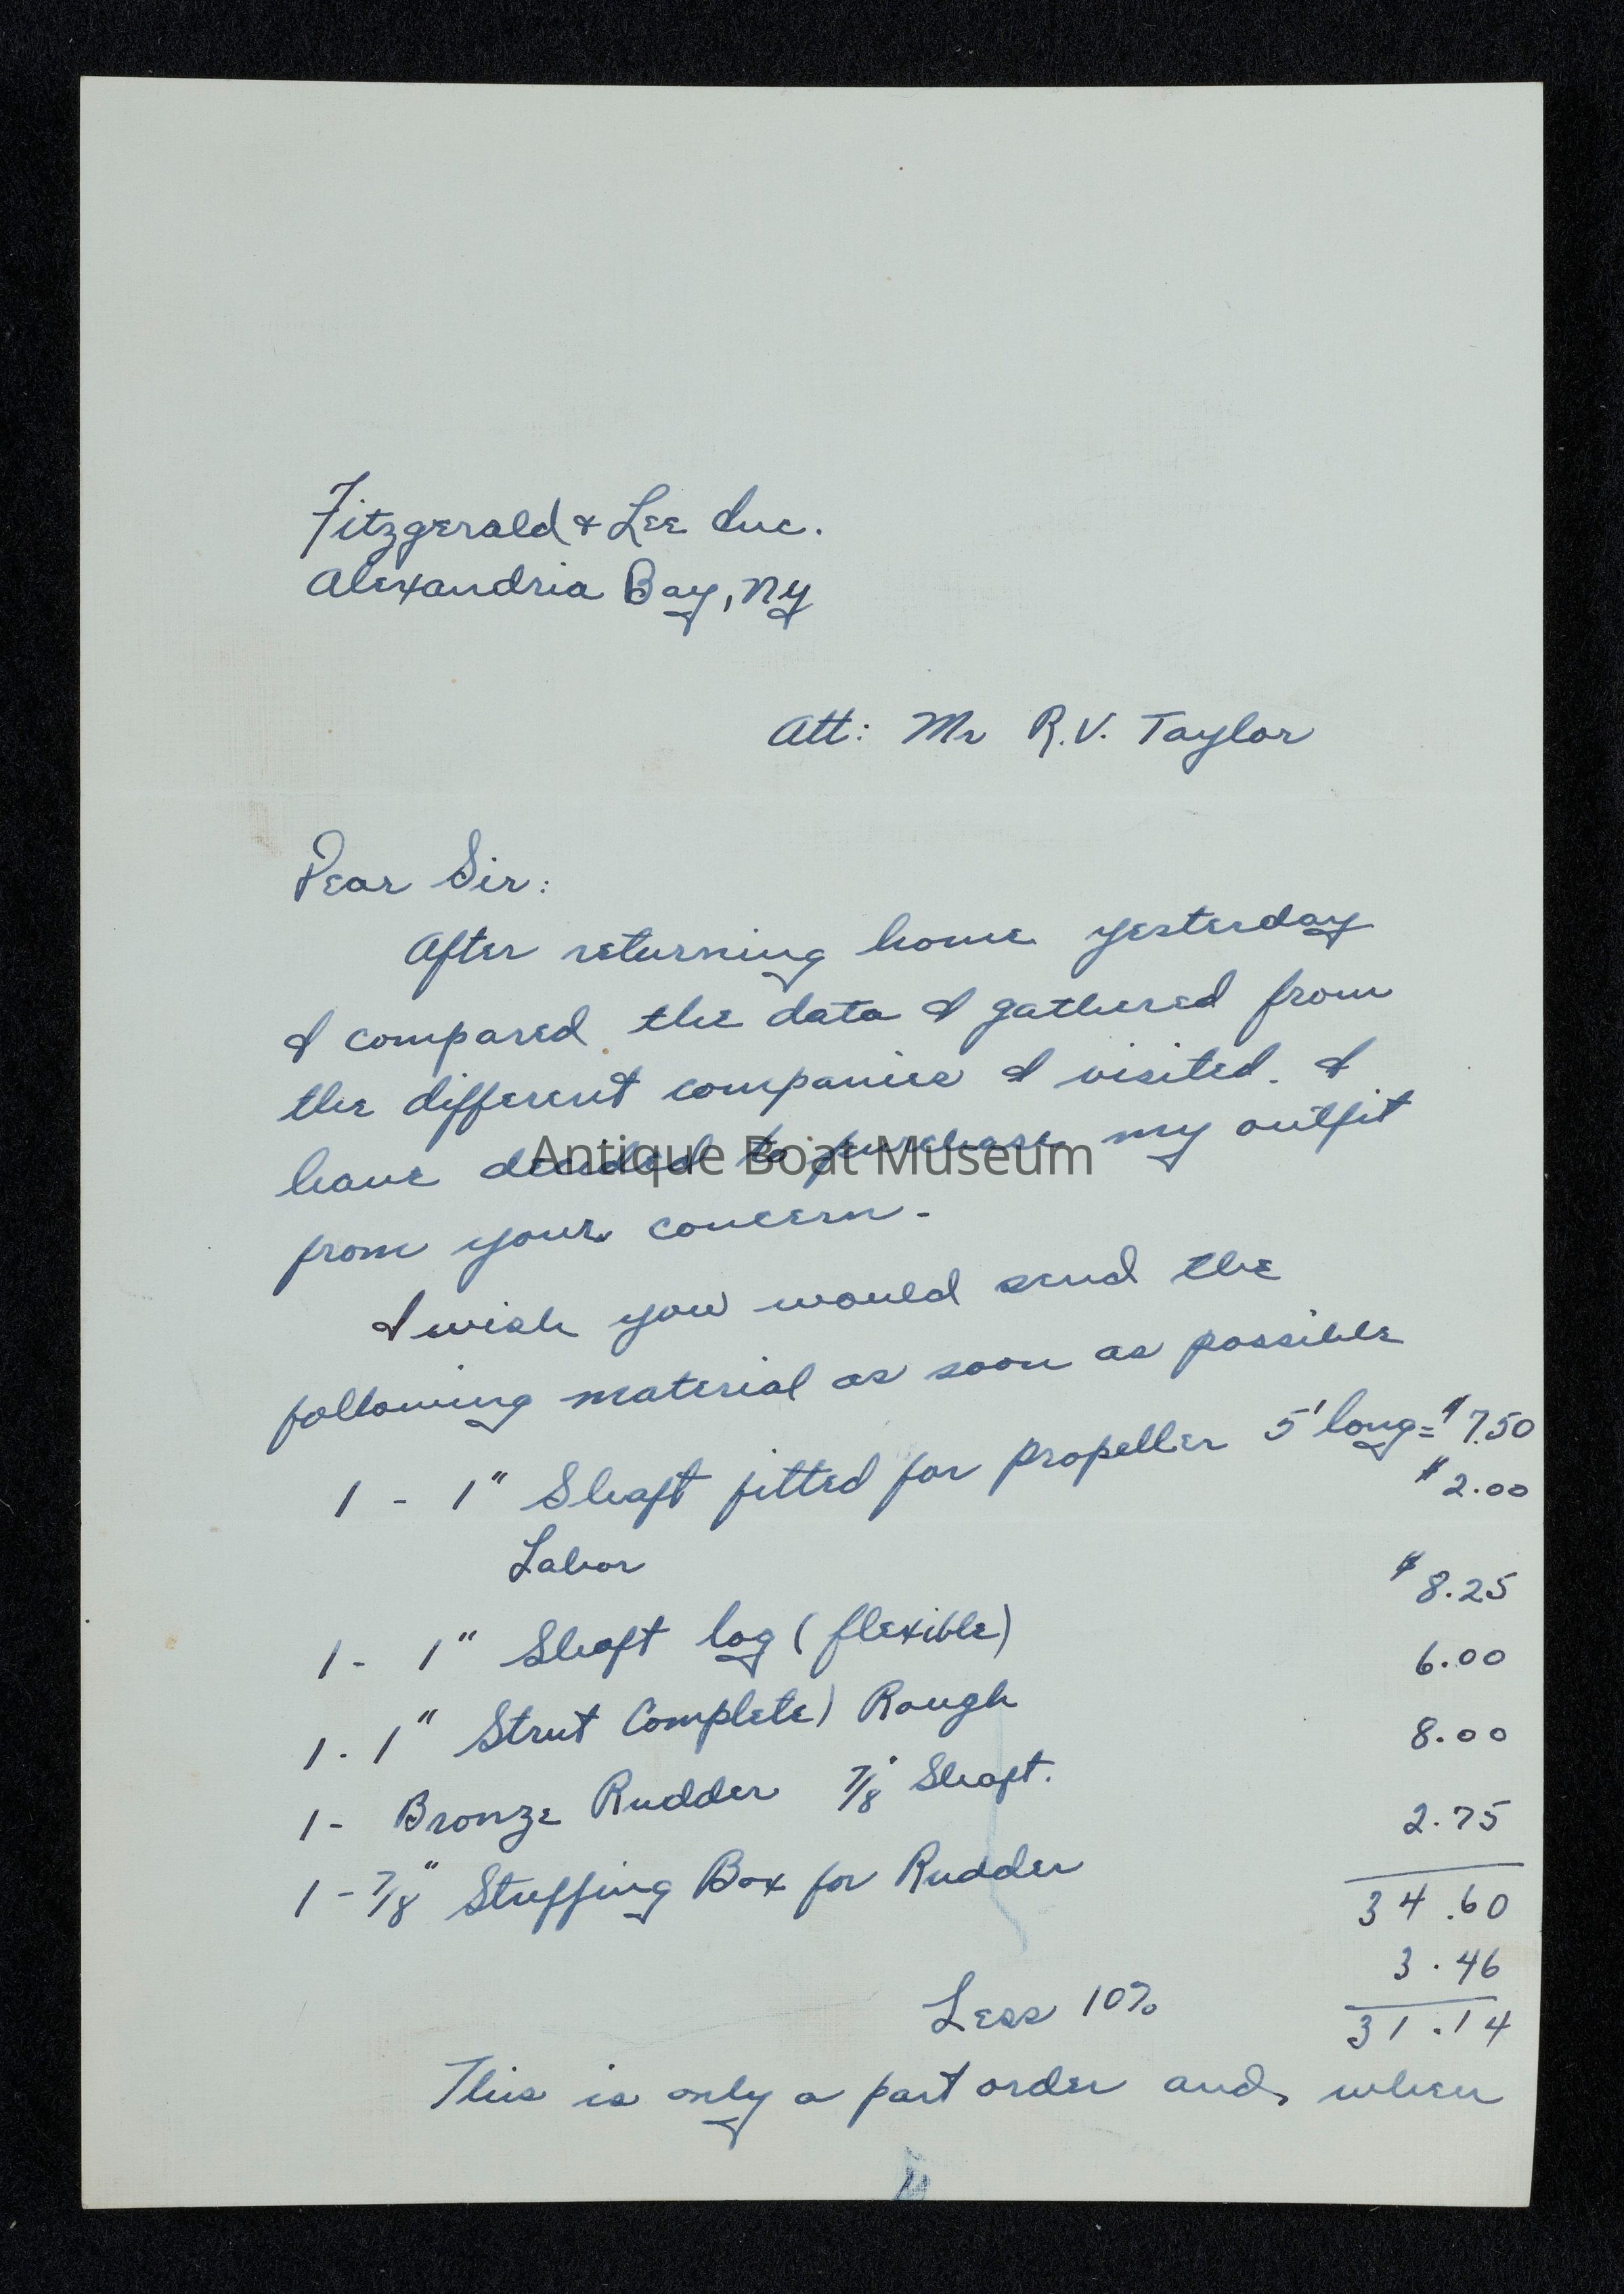 Fitzgerald & Lee Inc.
Alexandria Bay, NY
Att: Mr R.V. Taylor
Dear Sir:
After returning home yesterday
I compared the data I gathered from
the different companies I visited. I
have decided to purchase my outfit
Antique Boat Museum
from your concern.
I wish you would send the
following material as soon as possible
1 - 1" Shaft fitted for propeller 5' long = $7.50
Labor $2.00
1 - 1" Shaft log (flexible) $8.25
1 - 1" Strut Complete) Rough 6.00
1 - Bronze Rudder 7/8" Shaft. 8.00
1 - 7/8" Stuffing Box for Rudder 2.75
34.60
Less 10% 3.46
31.14
This is only a part order and, when